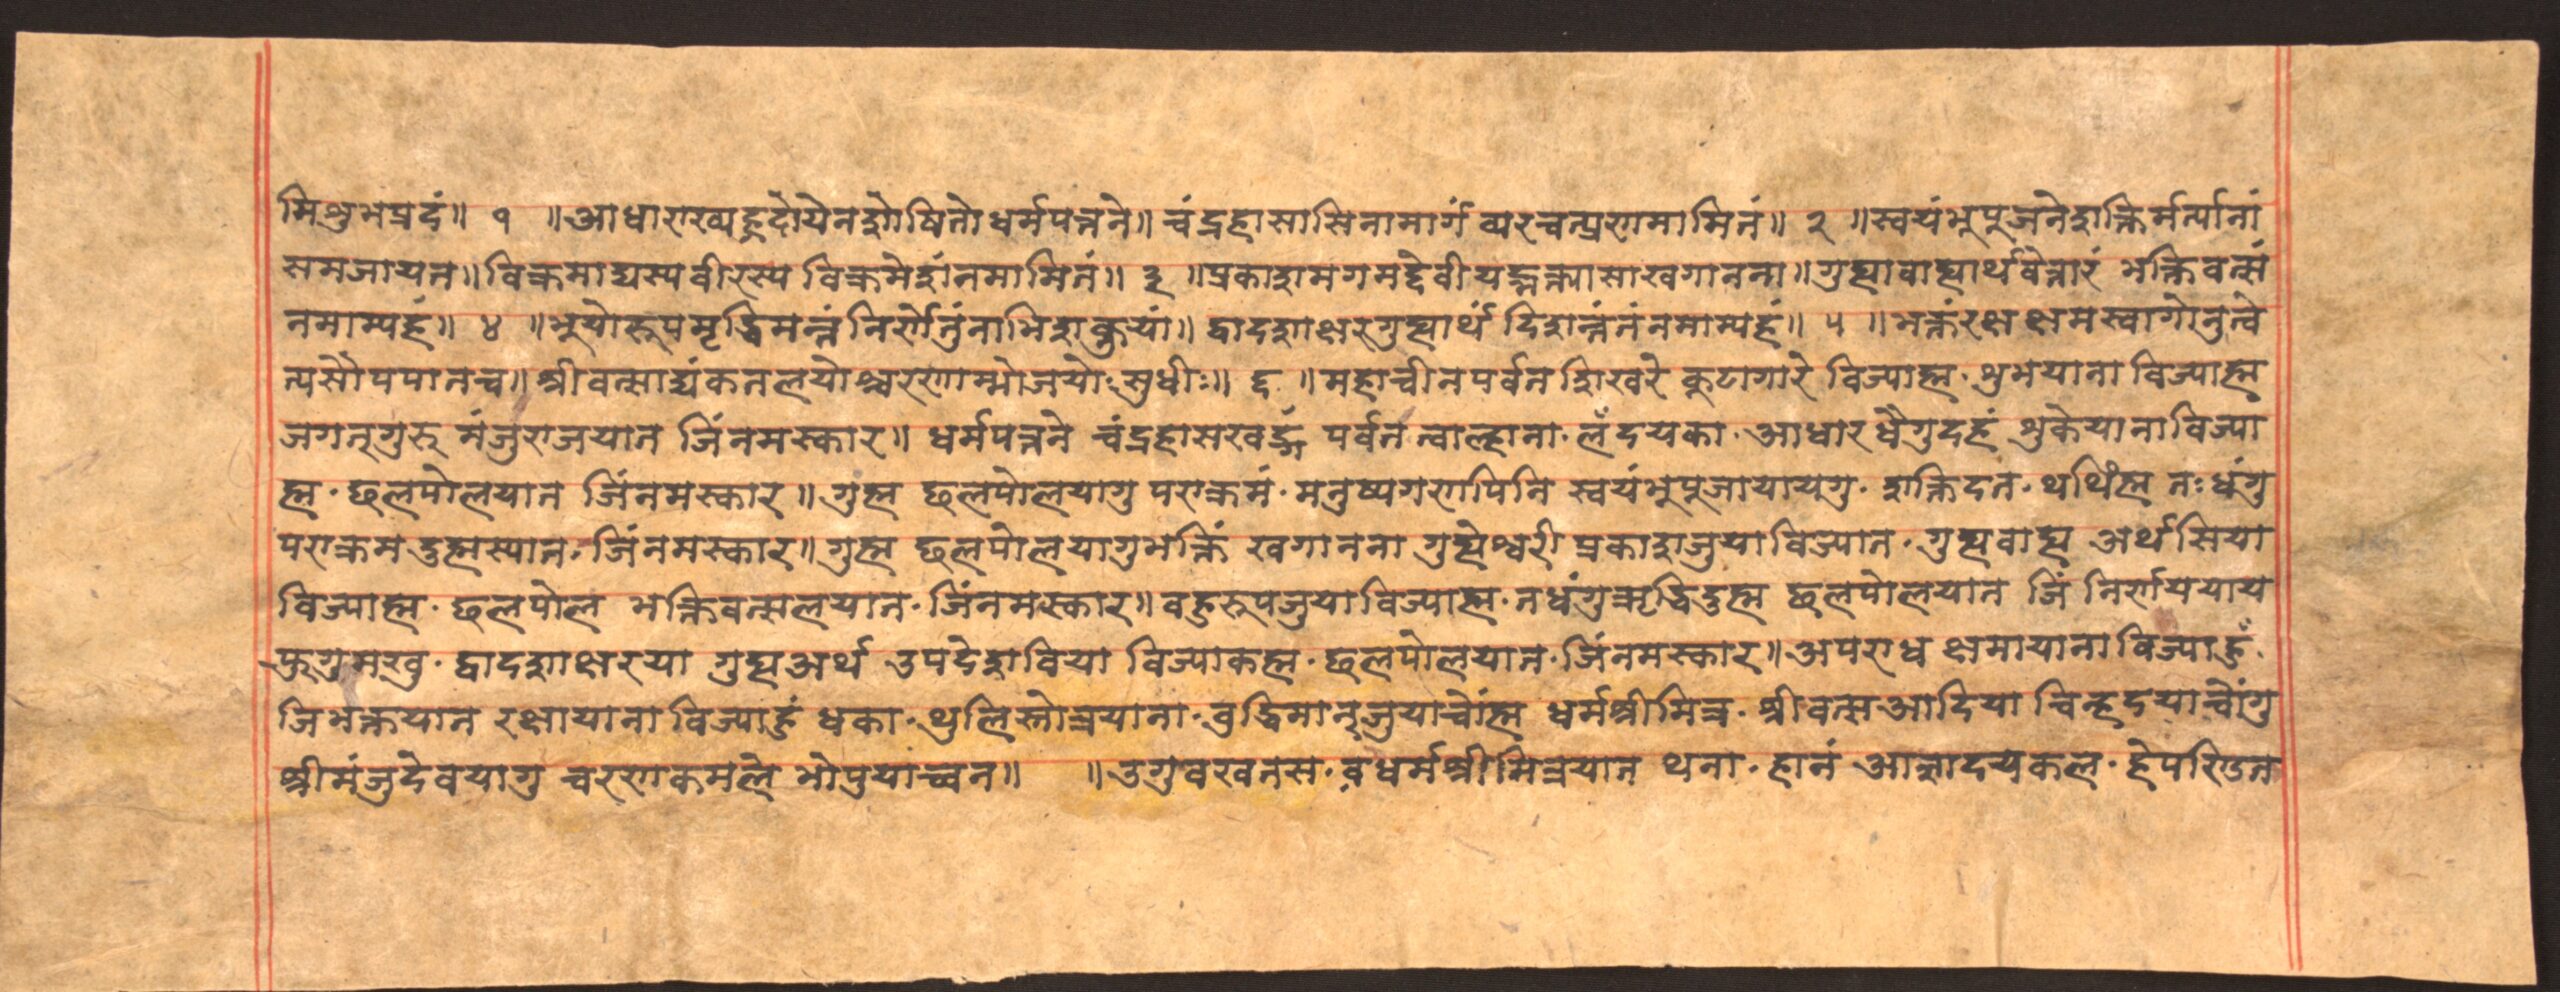 मिशुभप्रदं॥ १ ॥आधाराख्यह्रदोयेनशोषितोधर्मपत्तने॥चंद्रहासासिनामार्गं व्यरचत्प्रणमामितं॥ २ ॥स्वयंभूपूजनेशक्तिर्मर्त्यानां
समजायत॥विक्रमाद्यस्यवीरस्य विक्रमेशंनमामितं॥ ३ ॥प्रकाशमगमद्देवीयद्भक्त्यासाखगानना॥गुह्यावाह्यार्थवेत्तारं भक्तिवत्सं
नमाम्यहं॥ ४ ॥भूयोरूपमृद्धिमन्तं निर्णेतुंनाभिशक्नुयां॥द्वादशाक्षरगुह्यार्थं दिशन्तंतंनमाम्यहं॥ ५ ॥भक्तंरक्ष क्षमस्वागोनुत्वे
त्यसौपपातच॥श्रीवत्साद्यंकतलयोश्चरणाम्भोजयोःसुधीः॥ ६ ॥महाचीनपर्वतशिखरे कूटागारे विज्याह्म·शुभयाना विज्याह्म
जगत्गुरु मंजुराजयात जिंनमस्कार॥ धर्मपत्तने चंद्रहासखड्गं पर्वत त्वाल्हाना·लँदयका·आधारधैगुदहं शुकेयानाविज्या
ह्म·छलपोलयात जिंनमस्कार॥गुह्म छलपोलयागु पराक्रमं·मनुष्यगणपिनि स्वयंभूपूजायायगु·शक्तिदत·थथिंह्म तःधंगु
पराक्रमदुह्मस्यात·जिंनमस्कार॥गुह्म छलपोलयागुभक्तिं खगानना गुह्येश्वरी प्रकाशजुयाविज्यात·गुह्यवाह्य अर्थसिया
विज्याह्म·छलपोल भक्तिवत्सलयात·जिंनमस्कार॥वहुरूपजुयाविज्याह्म·तधंगुऋद्धिदुह्म छलपोलयात जिं निर्णययाय
फुगुमखु·द्वादशाक्षरया गुह्यअर्थ उपदेशविया विज्याकह्म·छलपोलयात·जिंनमस्कार॥अपराध क्षमायानाविज्याहुँ·
जिभक्तयात रक्षायाना विज्याहुं धका·थुलिस्तोत्रयाना·वुद्धिमान्जुयाचोंह्म धर्मश्रीमित्र·श्रीवत्सआदिया चिन्हदयाचोंगु
श्रीमंजुदेवयागु चरणकमले भोपुयाच्वन॥ ॥उगुवखतस·व धर्मश्रीमित्रयात थना·हानं आज्ञादयकल·हेपण्डित